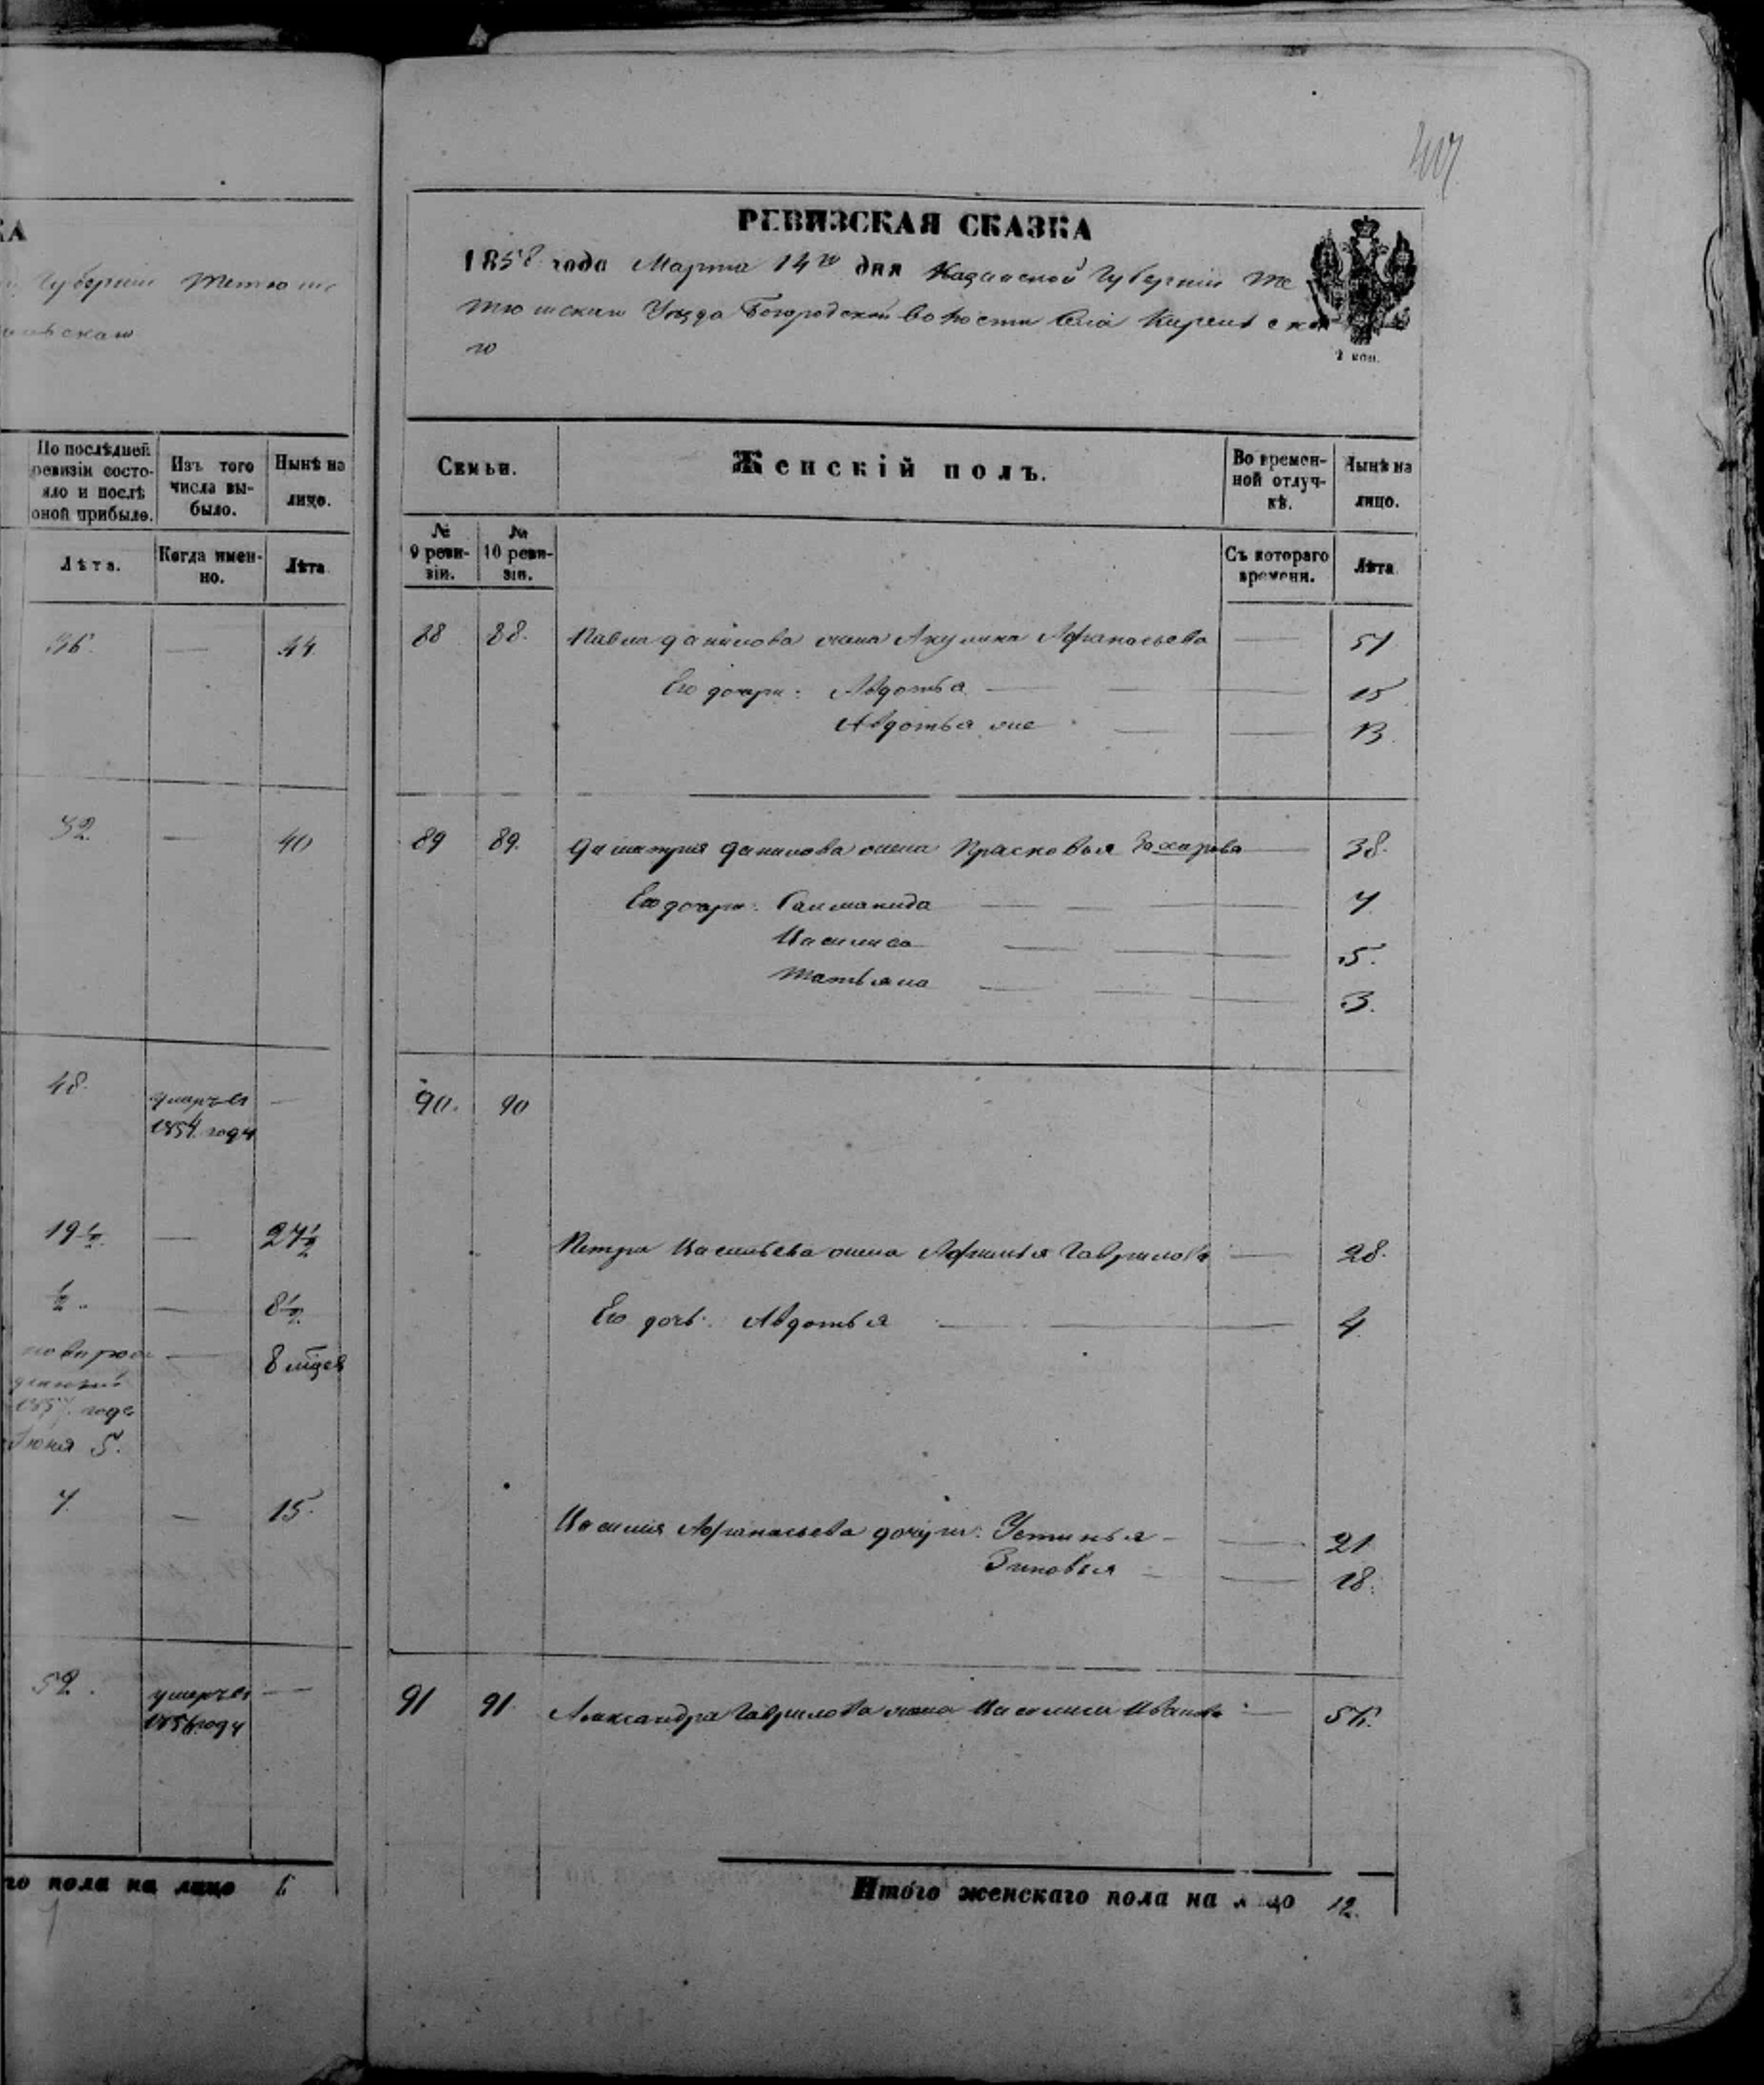 КА
Губернии Тетюш
По послѣдней ревизіи состо-
яло и послѣ
оной прибыло.
Изъ того
числа вы-
было.
Нынѣ на
лицо.
Лѣта.
Когда имен-
но.
Лѣта
36. — 44
32. — 40
48. умерчей —
1854. году
19½. — 27½
½. — 8½.
новорож — 8 мѣсев
1857. года
Іюня 5.
7. — 15.
52. умерчей —
1856 году
го пола на лицо 6
407
РЕВИЗСКАЯ СКАЗКА
1858 года Марта 14го дня Казанской Губерніи Те
тюшскаго Уезда Богородской волости Села
го
2 коп.
Семьи.
Женскій полъ.
Во времен-
ной отлуч-
кѣ.
Нынѣ на
лицо.
№
9 реви-
зіи.
№
10 реви-
зіи.
Съ котораго
времени.
Лѣта
88 88. Павла Данилова жена Акулина Афанасьева — 51
Его дочери: Авдотья — 15
Авдотья же — 13.
89 89. Димитрия Данилова жена Прасковья Захарова — 38.
Его дочери: — 7
Василиса — 5.
Татьяна — 3.
90. 90
Петра Васильева жена Афимья Гаврилова — 28.
Его дочь: Авдотья — 4
Василия Афанасьева дочери: Устинья — 21
Зиновья — 18.
91 91. Александра Гаврилова жена Василиса Иванова — 56.
Итого женскаго пола на лицо 12.